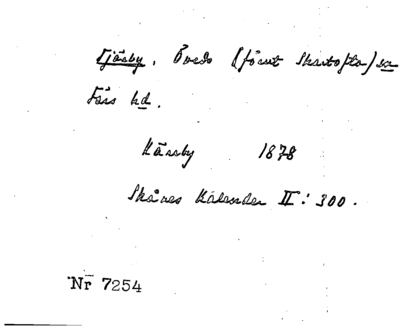 Tjäsby, Öveds (förut Skartofta) sn
Färs hd.
Kässby 1878
Skånes Kalender II: 300.
Nr 7254